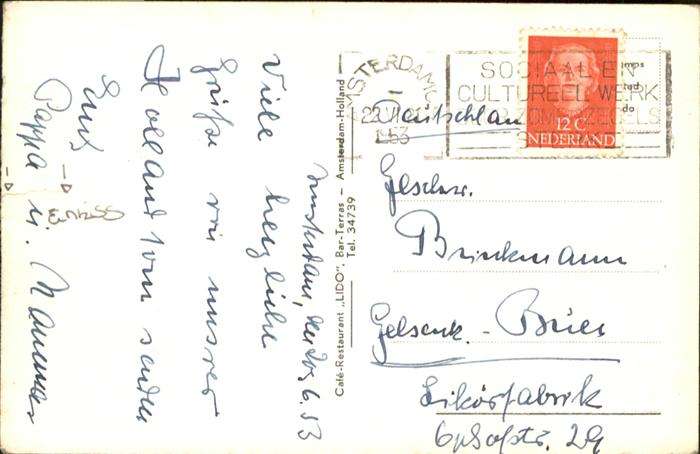 Amsterdam, den 20.6.53
Viele herzliche
Grüße von unsrer
Hollandtour senden
Euch
Pappa u. Mamma
Café-Restaurant „LIDO", Bar-Terras – Amsterdam-Holland –
Tel. 34739
AMSTERDAM
22.VI
1953
SOCIAAL EN
CULTUREEL WERK
ZOMERZEGELS
12 C
NEDERLAND
Deutschland
Geschw.
Brinkmann
Gelsenk. - Buer
Likörfabrik
29